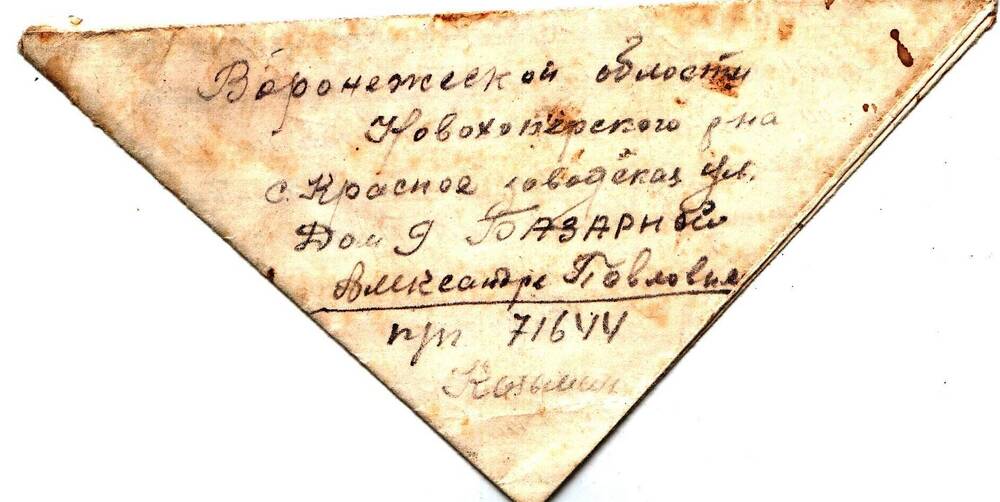 Воронежской области
Новохоперского р-на
с. Красное заводская ул.
Дом 9 БАЗАРНОЙ
Александре Павловне
п/п 71644